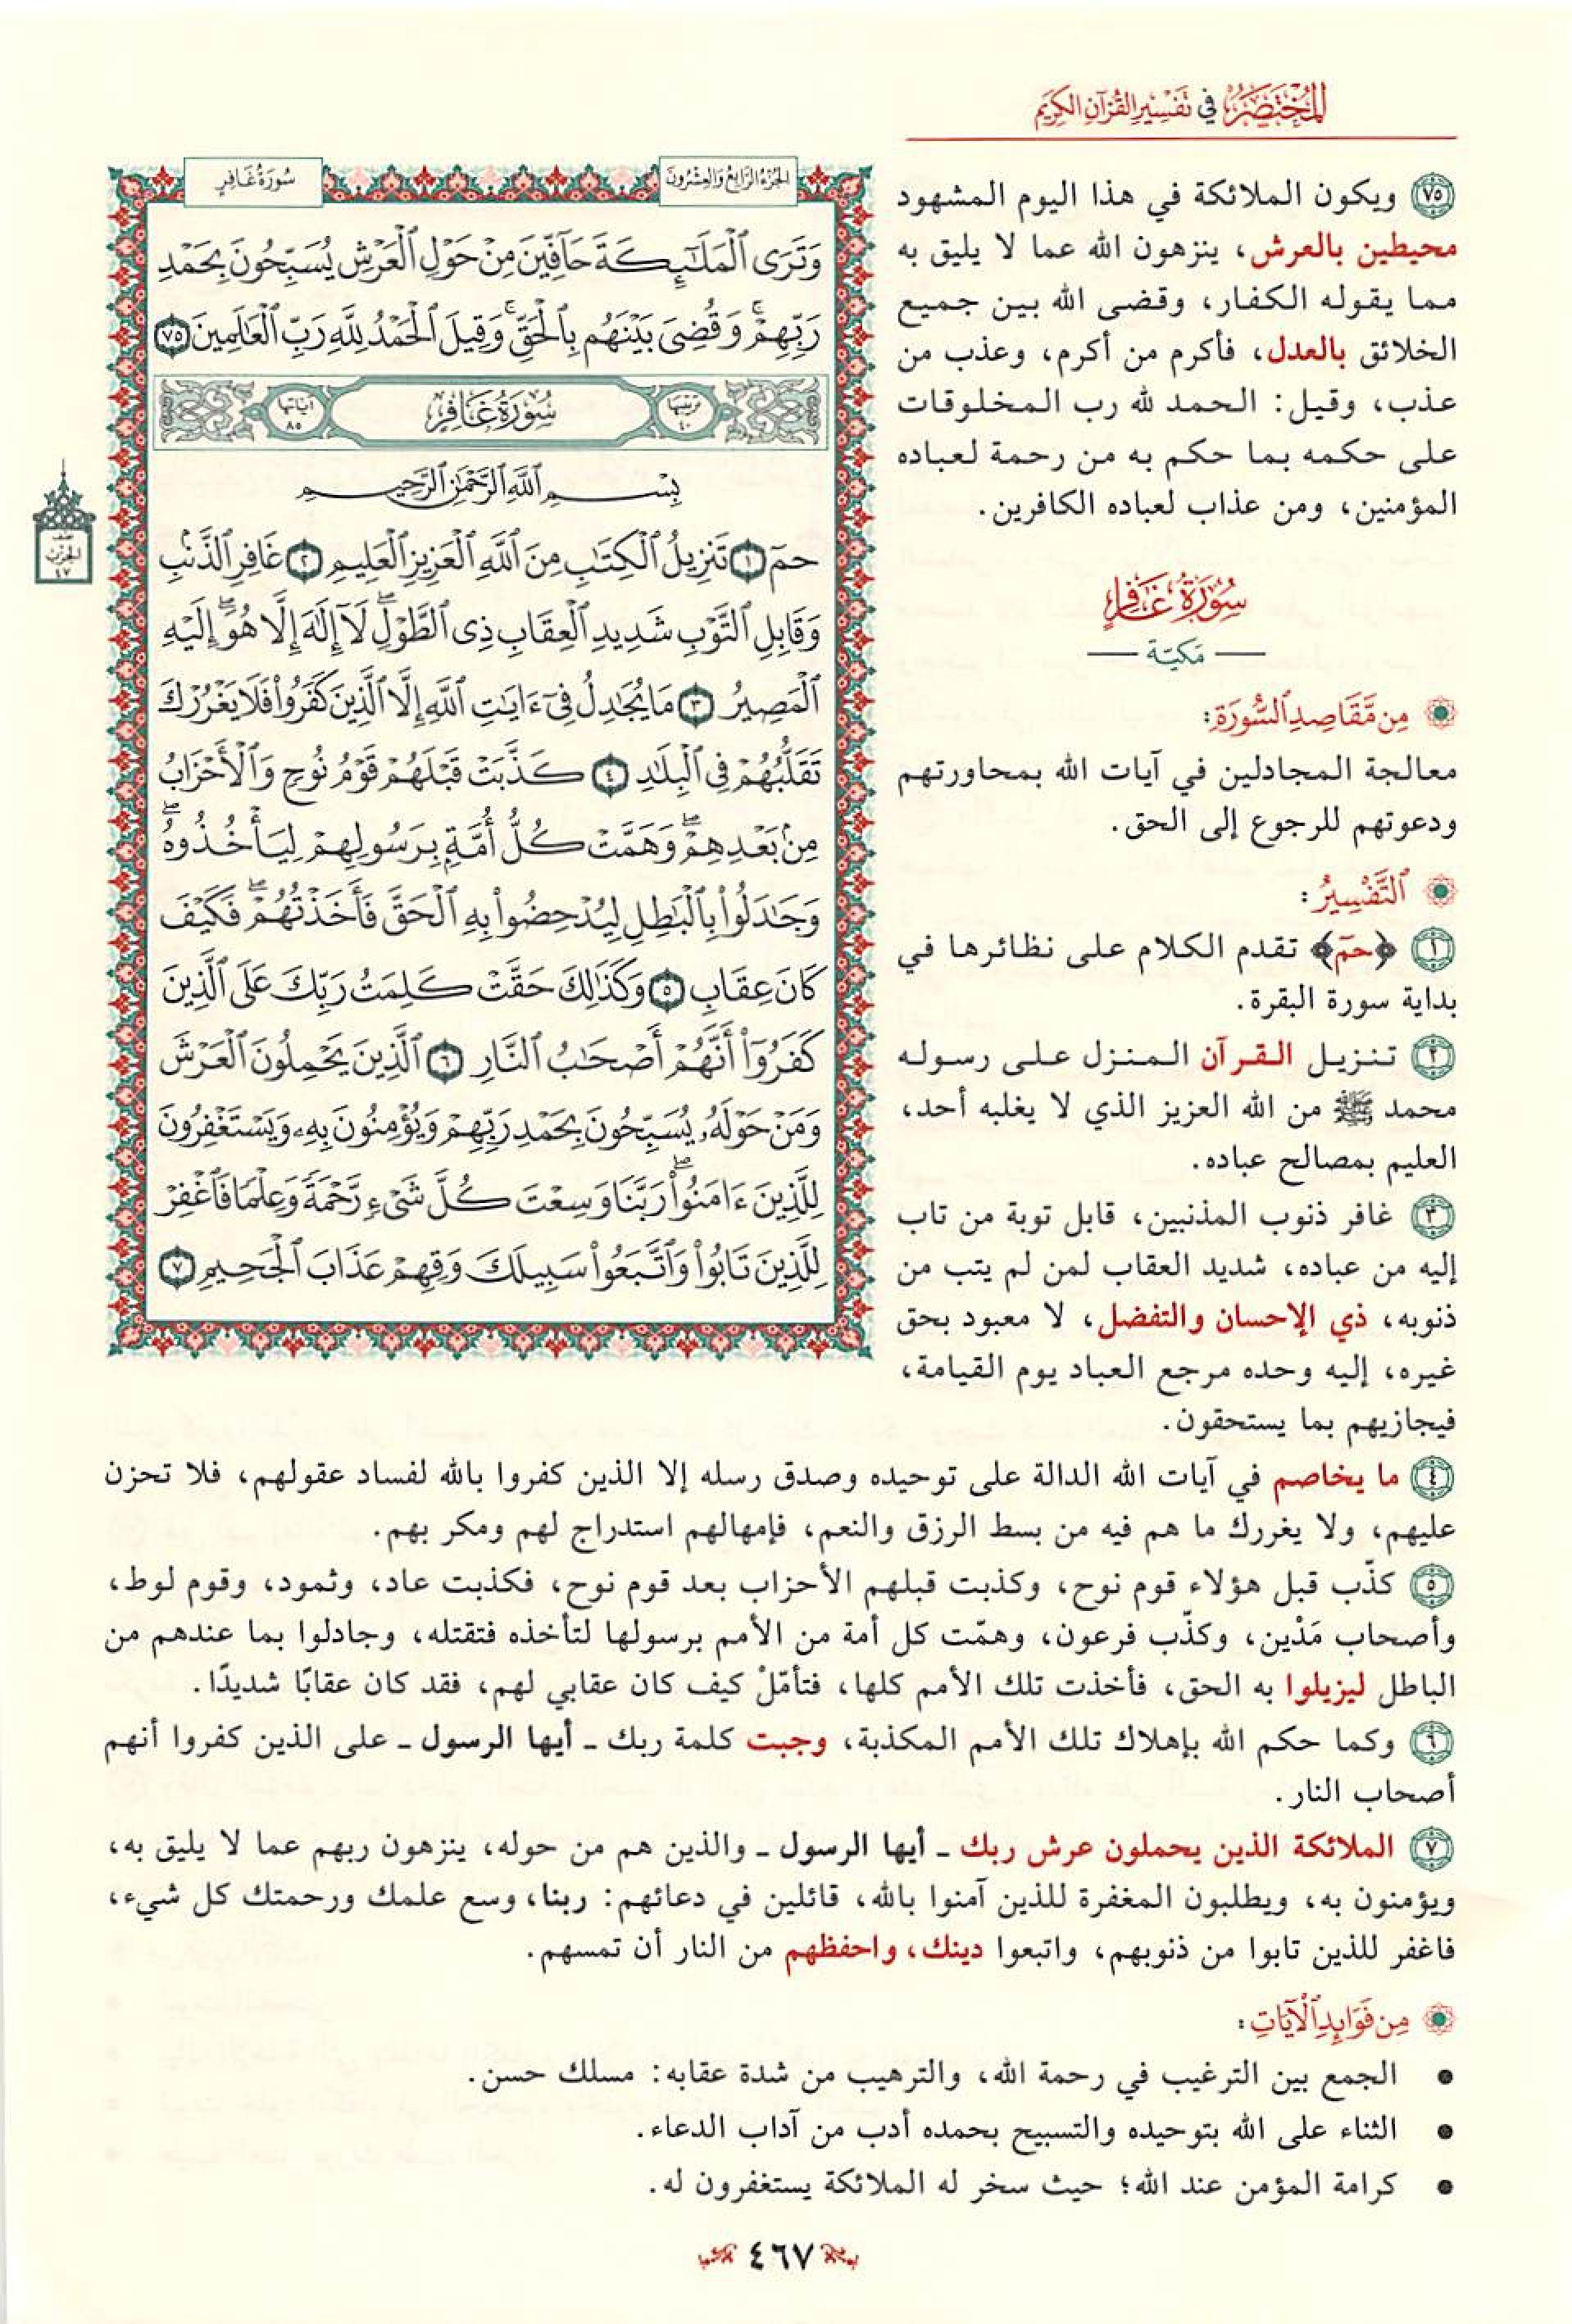 المختصر في تفسير القرآن الكريم
٧٥ ويكون الملائكة في هذا اليوم المشهود
محيطين بالعرش، ينزهون الله عما لا يليق به
مما يقوله الكفار، وقضى الله بين جميع
الخلائق بالعدل، فأكرم من أكرم، وعذب من
عذب، وقيل: الحمد لله رب المخلوقات
على حكمه بما حكم به من رحمة لعباده
المؤمنين، ومن عذاب لعباده الكافرين.
سُورَةُ غَافِرٍ
مَكِيَّة
مِن مَّقَاصِدِ ٱلسُّورَةِ:
معالجة المجادلين في آيات الله بمحاورتهم
ودعوتهم للرجوع إلى الحق.
ٱلتَّفْسِيرُ:
١ ﴿حمٓ﴾ تقدم الكلام على نظائرها في
بداية سورة البقرة.
٢ تنزيل القرآن المنزل على رسوله
محمد ﷺ من الله العزيز الذي لا يغلبه أحد،
العليم بمصالح عباده.
٣ غافر ذنوب المذنبين، قابل توبة من تاب
إليه من عباده، شديد العقاب لمن لم يتب من
ذنوبه، ذي الإحسان والتفضل، لا معبود بحق
غيره، إليه وحده مرجع العباد يوم القيامة،
فيجازيهم بما يستحقون.
الجزء الرابع والعشرون
سورة غافر
وَتَرَى ٱلْمَلَٰٓئِكَةَ حَآفِّينَ مِنْ حَوْلِ ٱلْعَرْشِ يُسَبِّحُونَ بِحَمْدِ
رَبِّهِمْۚ وَقُضِىَ بَيْنَهُم بِٱلْحَقِّۚ وَقِيلَ ٱلْحَمْدُ لِلَّهِ رَبِّ ٱلْعَٰلَمِينَ ٧٥
ترتيبها ٤٠ سُورَةُ غَافِرٍ آياتها ٨٥
بِسْمِ ٱللَّهِ ٱلرَّحْمَٰنِ ٱلرَّحِيمِ
حمٓ ١ تَنزِيلُ ٱلْكِتَٰبِ مِنَ ٱللَّهِ ٱلْعَزِيزِ ٱلْعَلِيمِ ٢ غَافِرِ ٱلذَّنۢبِ
وَقَابِلِ ٱلتَّوْبِ شَدِيدِ ٱلْعِقَابِ ذِى ٱلطَّوْلِۖ لَآ إِلَٰهَ إِلَّا هُوَۖ إِلَيْهِ
ٱلْمَصِيرُ ٣ مَا يُجَٰدِلُ فِىٓ ءَايَٰتِ ٱللَّهِ إِلَّا ٱلَّذِينَ كَفَرُوا۟ فَلَا يَغْرُرْكَ
تَقَلُّبُهُمْ فِى ٱلْبِلَٰدِ ٤ كَذَّبَتْ قَبْلَهُمْ قَوْمُ نُوحٍ وَٱلْأَحْزَابُ
مِنۢ بَعْدِهِمْۖ وَهَمَّتْ كُلُّ أُمَّةٍۭ بِرَسُولِهِمْ لِيَأْخُذُوهُۖ
وَجَٰدَلُوا۟ بِٱلْبَٰطِلِ لِيُدْحِضُوا۟ بِهِ ٱلْحَقَّ فَأَخَذْتُهُمْۖ فَكَيْفَ
كَانَ عِقَابِ ٥ وَكَذَٰلِكَ حَقَّتْ كَلِمَتُ رَبِّكَ عَلَى ٱلَّذِينَ
كَفَرُوٓا۟ أَنَّهُمْ أَصْحَٰبُ ٱلنَّارِ ٦ ٱلَّذِينَ يَحْمِلُونَ ٱلْعَرْشَ
وَمَنْ حَوْلَهُۥ يُسَبِّحُونَ بِحَمْدِ رَبِّهِمْ وَيُؤْمِنُونَ بِهِۦ وَيَسْتَغْفِرُونَ
لِلَّذِينَ ءَامَنُوا۟ۖ رَبَّنَا وَسِعْتَ كُلَّ شَىْءٍ رَّحْمَةً وَعِلْمًا فَٱغْفِرْ
لِلَّذِينَ تَابُوا۟ وَٱتَّبَعُوا۟ سَبِيلَكَ وَقِهِمْ عَذَابَ ٱلْجَحِيمِ ٧
نصف
الحزب
٤٧
٤ ما يخاصم في آيات الله الدالة على توحيده وصدق رسله إلا الذين كفروا بالله لفساد عقولهم، فلا تحزن
عليهم، ولا يغررك ما هم فيه من بسط الرزق والنعم، فإمهالهم استدراج لهم ومكر بهم.
٥ كذّب قبل هؤلاء قوم نوح، وكذبت قبلهم الأحزاب بعد قوم نوح، فكذبت عاد، وثمود، وقوم لوط،
وأصحاب مَدْين، وكذّب فرعون، وهمّت كل أمة من الأمم برسولها لتأخذه فتقتله، وجادلوا بما عندهم من
الباطل ليزيلوا به الحق، فأخذت تلك الأمم كلها، فتأمّلْ كيف كان عقابي لهم، فقد كان عقابًا شديدًا.
٦ وكما حكم الله بإهلاك تلك الأمم المكذبة، وجبت كلمة ربك ـ أيها الرسول ـ على الذين كفروا أنهم
أصحاب النار.
٧ الملائكة الذين يحملون عرش ربك ـ أيها الرسول ـ والذين هم من حوله، ينزهون ربهم عما لا يليق به،
ويؤمنون به، ويطلبون المغفرة للذين آمنوا بالله، قائلين في دعائهم: ربنا، وسع علمك ورحمتك كل شيء،
فاغفر للذين تابوا من ذنوبهم، واتبعوا دينك، واحفظهم من النار أن تمسهم.
مِن فَوَائِدِ ٱلْآيَاتِ:
• الجمع بين الترغيب في رحمة الله، والترهيب من شدة عقابه: مسلك حسن.
• الثناء على الله بتوحيده والتسبيح بحمده أدب من آداب الدعاء.
• كرامة المؤمن عند الله؛ حيث سخر له الملائكة يستغفرون له.
٤٦٧